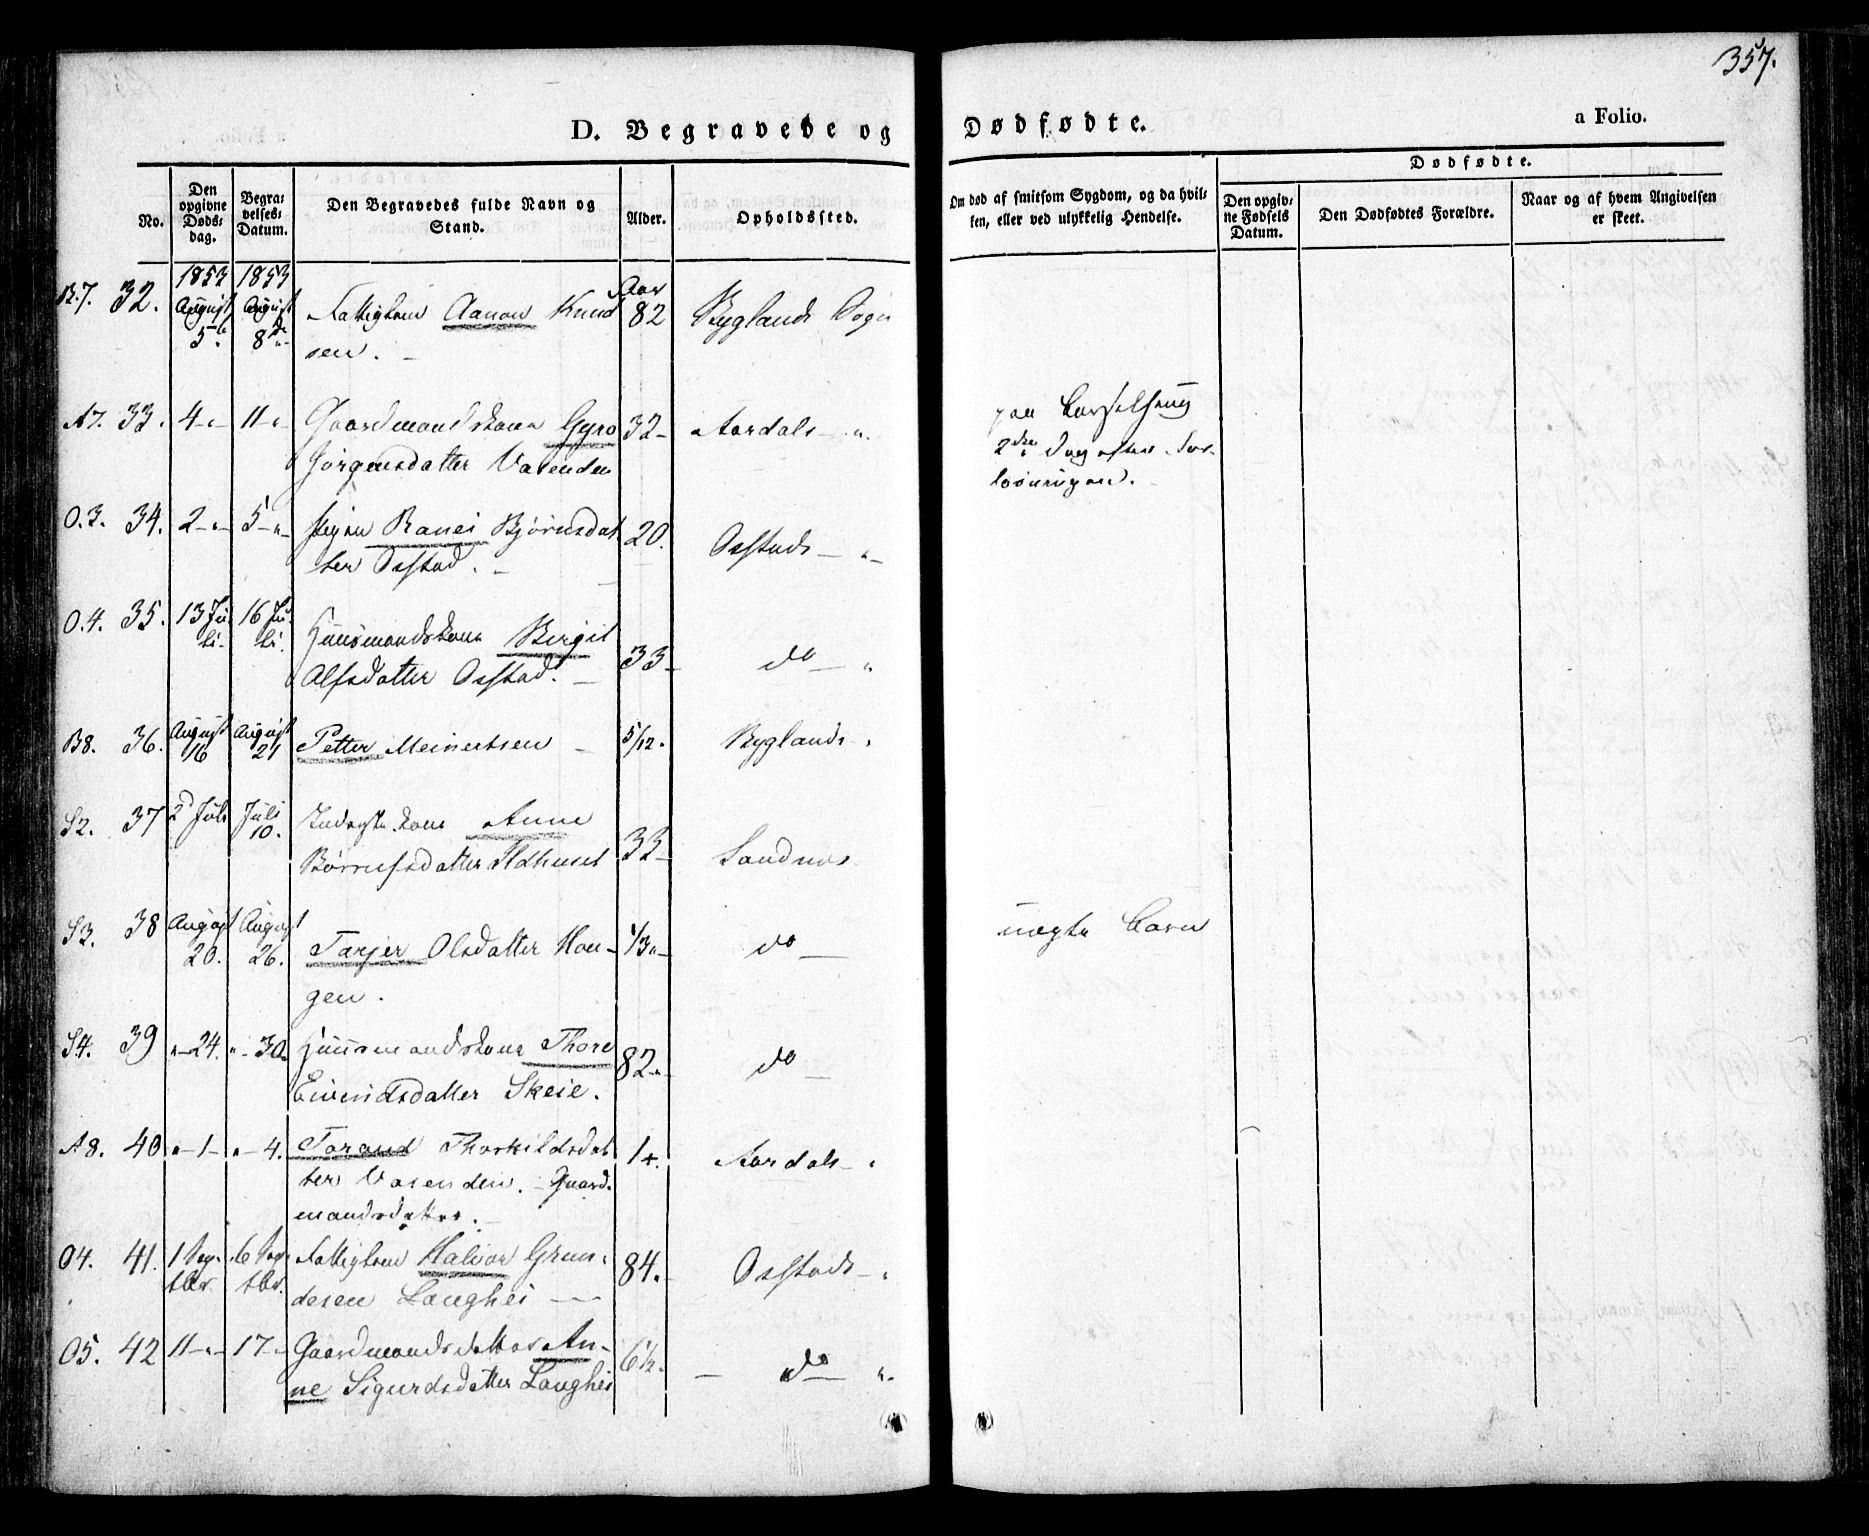 357.
D. Begravede og Dødfødte.
a Folio.
No.
Den opgivne Døds-dag.
Begra-velses-Datum.
Den Begravedes fulde Navn og Stand.
Alder.
Opholdssted.
Om død af smitsom Sygdom, og da hvil-
ken, eller ved ulykkelig Hendelse.
Dødfødte.
Den opgiv-ne Fødsels Datum.
Den Dødfødtes Forældre.
Naar og af hvem Angivelsen er skeet.
1853 1853 Aar
B.7. 32. August 5te August 8de Fattiglem Aanon Knud 82 Byglands Sogn
sen. -
A7. 33. 4 -"- 11 -"- Gaardmandskone Gyro 32- Aardals - ". paa Barselseng
Jørgensdatter Vasenden 2den Dag efter For-
løsningen.
O.3. 34. 2 -"- 5 -"- Pigen Ranei Bjørnsdat 20. Ostads - "-
ter Ostad. -
O.4. 35. 13 Ju-li. 16 Ju-li. Huusmandskone Birgit
Alfsdatter Ostad. - 33- do - "
B8. 36. August 16 August 21 Petter Meinertsen - 5/12. Byglands - "
S2. 37 2 Juli Juli 10. Inderstkone Anne
Børrufsdatter Ildhuset 33- Sandnæs
S3. 38 August 20. August 26. Tarjer Olsdatter Hou- 1/3"- do - uægte Barn
gen.
S4. 39 "-24. "-30. Huusmandskone Thore 82-"- do -
Eivindsdatter Skeie.
A8. 40 "-1- "-4. Torand Thorkildsdat 1 Aardals - "
ter Vasenden. - Gaard-
mandsdatter. -
O4. 41. 1 Sep-tbr. 6 Sep-tbr. Fattiglem Halvor Grun- 84. Ostads - "
desen Langhei -
O5. 42 11 -"- 17 -"- Gaardmandsdatter An- 6½. - do - ".
ne Sigurdsdatter Langhei